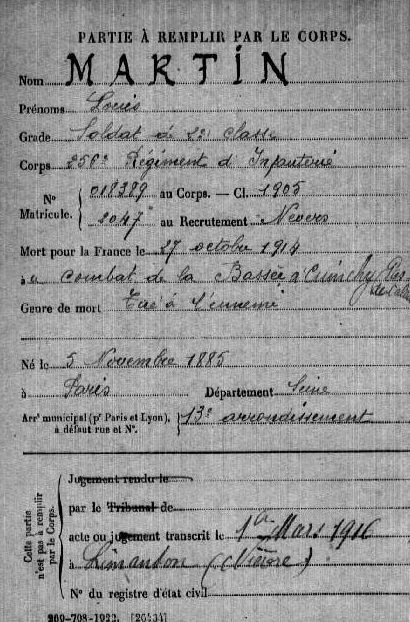 PARTIE À REMPLIR PAR LE CORPS.
Nom MARTIN
Prénoms Louis
Grade Soldat de 2e classe
Corps 256e Régiment d'Infanterie
N° Matricule. { 018289 au Corps. — Cl. 1905
2047 au Recrutement Nevers
Mort pour la France le 27 octobre 1914
à u combat de la Bassée à Cuinchy Pas de Calais
Genre de mort Tué à l'ennemi
Né le 5 Novembre 1885
à Paris Département Seine
Arrt municipal (pr Paris et Lyon), à défaut rue et N°. } 13e arrondissement
Cette partie n'est pas à remplir par le Corps.
Jugement rendu le
par le Tribunal de
acte ou jugement transcrit le 1er Mars 1916
à Limanton (Nièvre)
N° du registre d'état civil
209-708-1922. [26434]